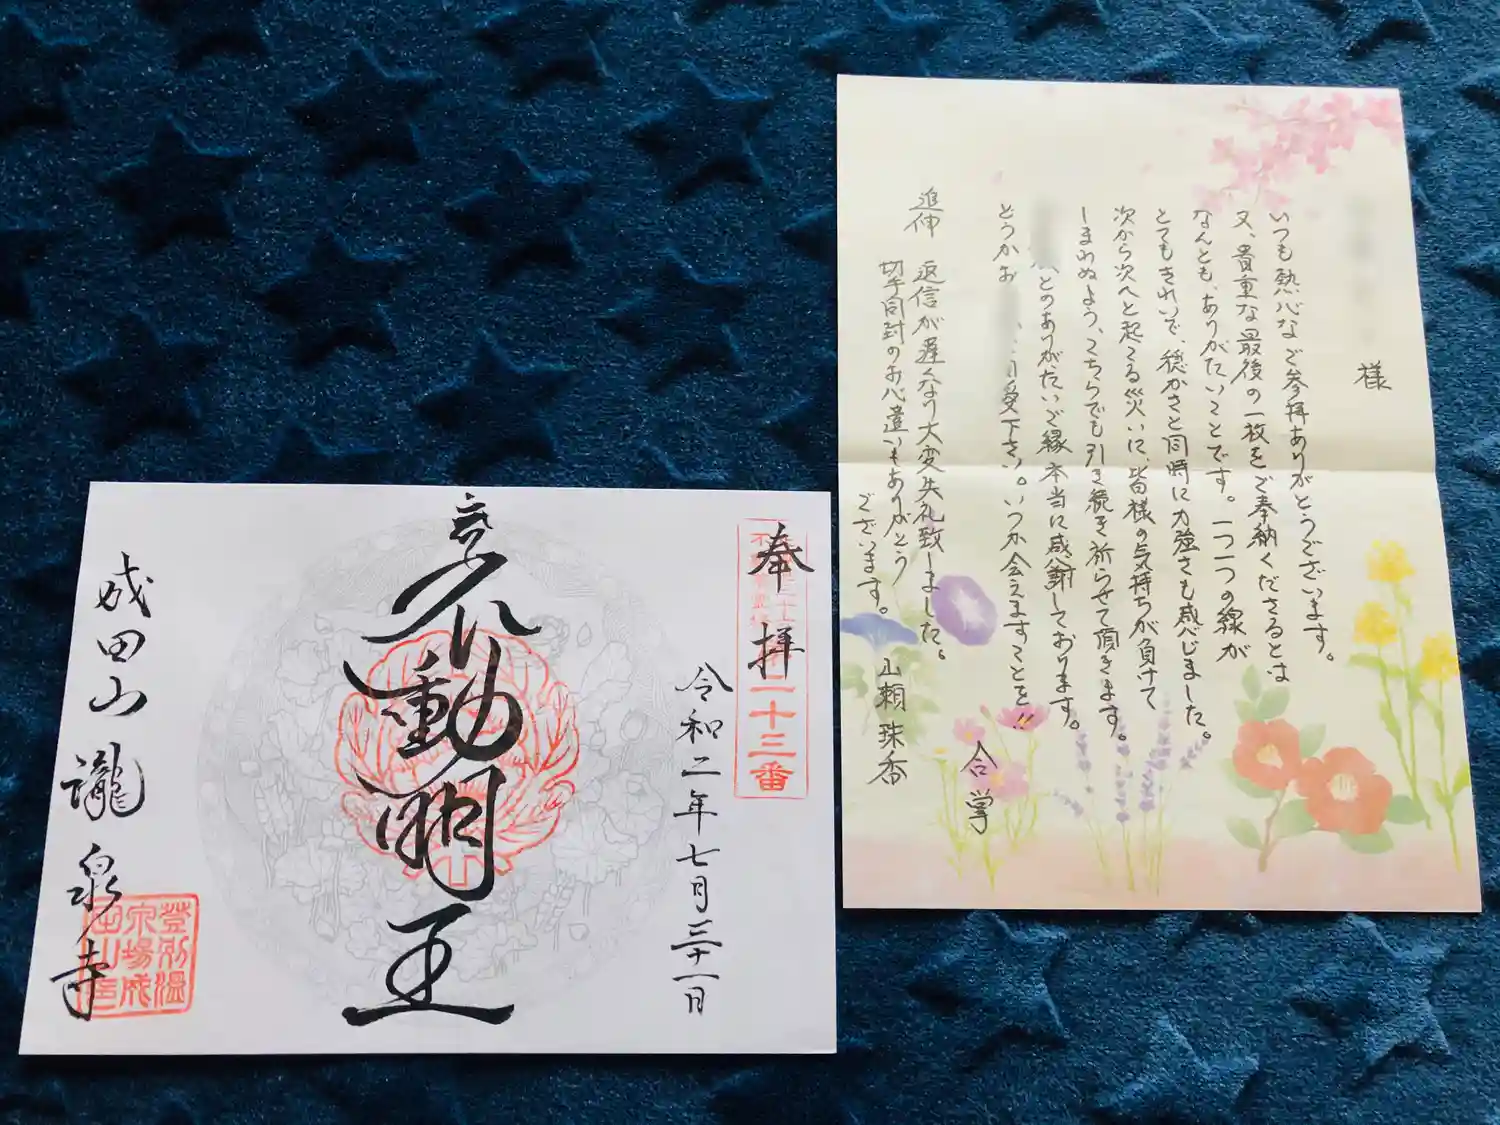 奉拝
令和二年七月三十一日
不動明王
成田山瀧泉寺
二十三番
様
いつも熱心なご参拝ありがとうございます。
又、貴重な最後の一枚をご奉納くださるとは
なんとも、ありがたいことです。一つ一つの線が
とてもきれいで、穏かさと同時に力強さも感じました。
次から次へと起こる災いに、皆様の気持ちが負けて
しまわぬよう、こちらでも引き続き祈らせて頂きます。
とのありがたいご縁本当に感謝しております。
どうかお 受下さい。いつか会えますことを!!
合掌
追伸 返信が遅くなり大変失礼致しました。
切手同封のお心遣いもありがとう
ございます。
山頼珠香